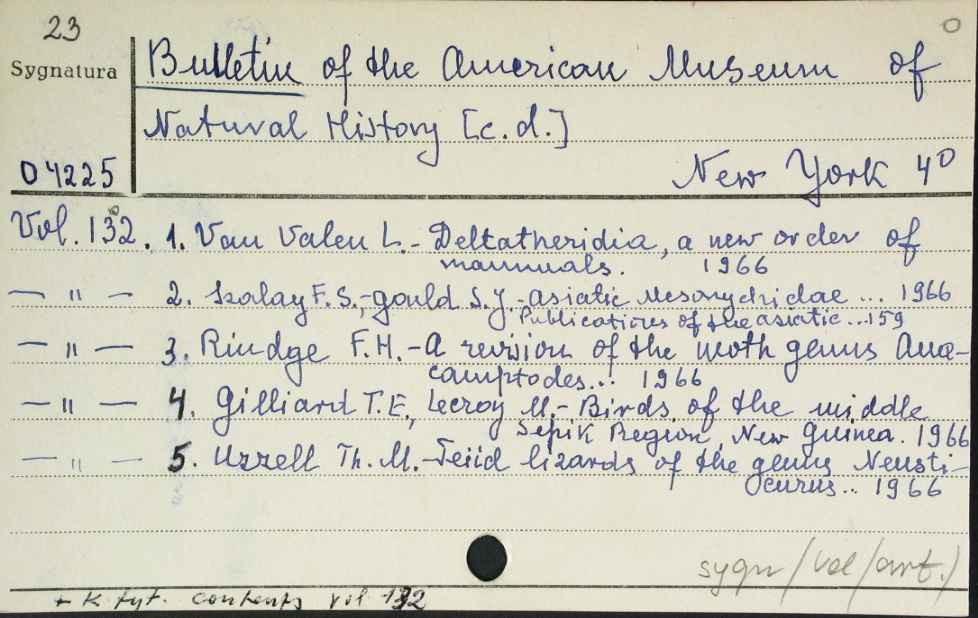 23
O
Sygnatura
Bulletin of the American Museum of
Natural History [c.d.]
04225
New York 4°
Vol. 132. 1. Van Valen L.- Deltatheridia, a new order of
mammals. 1966
— " — 2. Szalay F.S.,-Gould S.J.-Asiatic Mesonychidae ... 1966
Publications of the asiatic...159
— " — 3. Rindge F.H.-A revision of the moth genus Ana-
camptodes... 1966
— " — 4. Gilliard T.E., Lecroy M.- Birds of the middle
Sepik Region, New Guinea. 1966
— " — 5. Uzzell Th. M.-Teiid lizards of the genus Neusti-
curus.. 1966
sygn/vol/art.)
+ K. tyt. contents vol 132